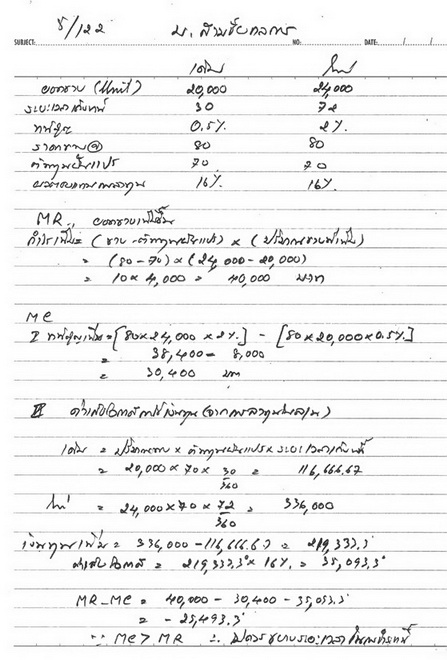 5/122 บ. สามชัยถาวร
SUBJECT: NO: DATE: / /
เดิม ใหม่
ยอดขาย (Unit) 20,000 24,000
ระยะเวลาเก็บหนี้ 30 72
หนี้สูญ 0.5% 2%
ราคาขาย@ 80 80
ต้นทุนผันแปร 70 70
ผลตอบแทนการลงทุน 16% 16%
MR., ยอดขายเพิ่มขึ้น
กำไรเพิ่ม = (ขาย - ต้นทุนผันแปร) × (ปริมาณขายที่เพิ่ม)
= (80 - 70) × (24,000 - 20,000)
= 10 × 4,000 = 40,000 บาท
MC
I หนี้สูญเพิ่ม = [80×24,000 × 2%] - [80×20,000×0.5%]
= 38,400 - 8,000
= 30,400 บาท
II ค่าเสียโอกาส
เดิม = ปริมาณขาย × ต้นทุนผันแปร × ระยะเวลาเก็บหนี้
= 20,000 × 70 × 30/360 = 116,666.67
ใหม่ = 24,000 × 70 × 72/360 = 336,000
เงินทุนเพิ่ม = 336,000 - 116,666.67 = 219,333.3
ค่าเสียโอกาส = 219,333.3 × 16% = 35,093.3
MR-MC = 40,000 - 30,400 - 35,093.3
= - 25,493.3
∵ MC > MR ∴ ไม่ควรขยายระยะเวลา